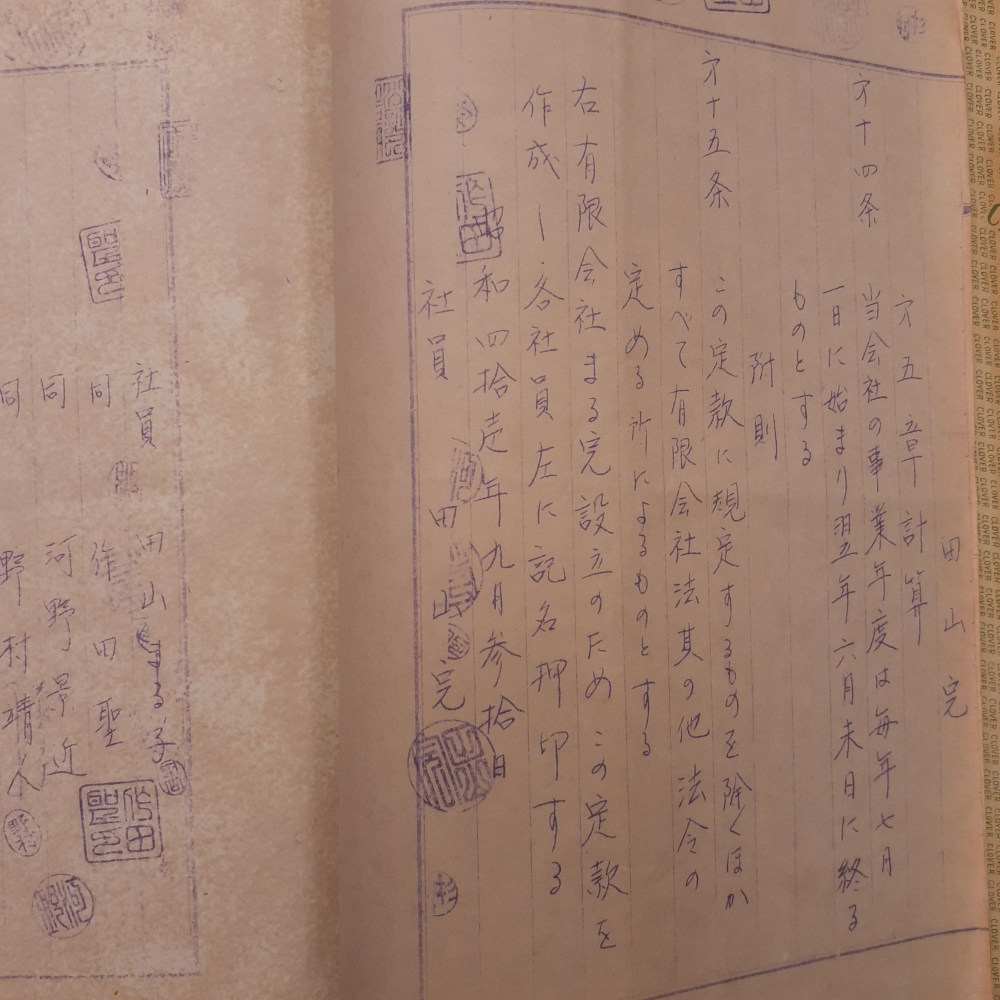 田山完
才五章計算
才十四条 当会社の事業年度は毎年七月
一日に始まり翌年六月末日に終る
ものとする
附則
才十五条 この定款に規定するものを除くほか
すべて有限会社法其の他法令の
定める所によるものとする
右有限会社まる完設立のため この定款を
作成し各社員左に記名押印する
昭和四拾壱年九月参拾日
社員 田山完
社員 田山まる子
同 作田聖
同 河野景近
同 野村靖
CLOVER CLOVER CLOVER